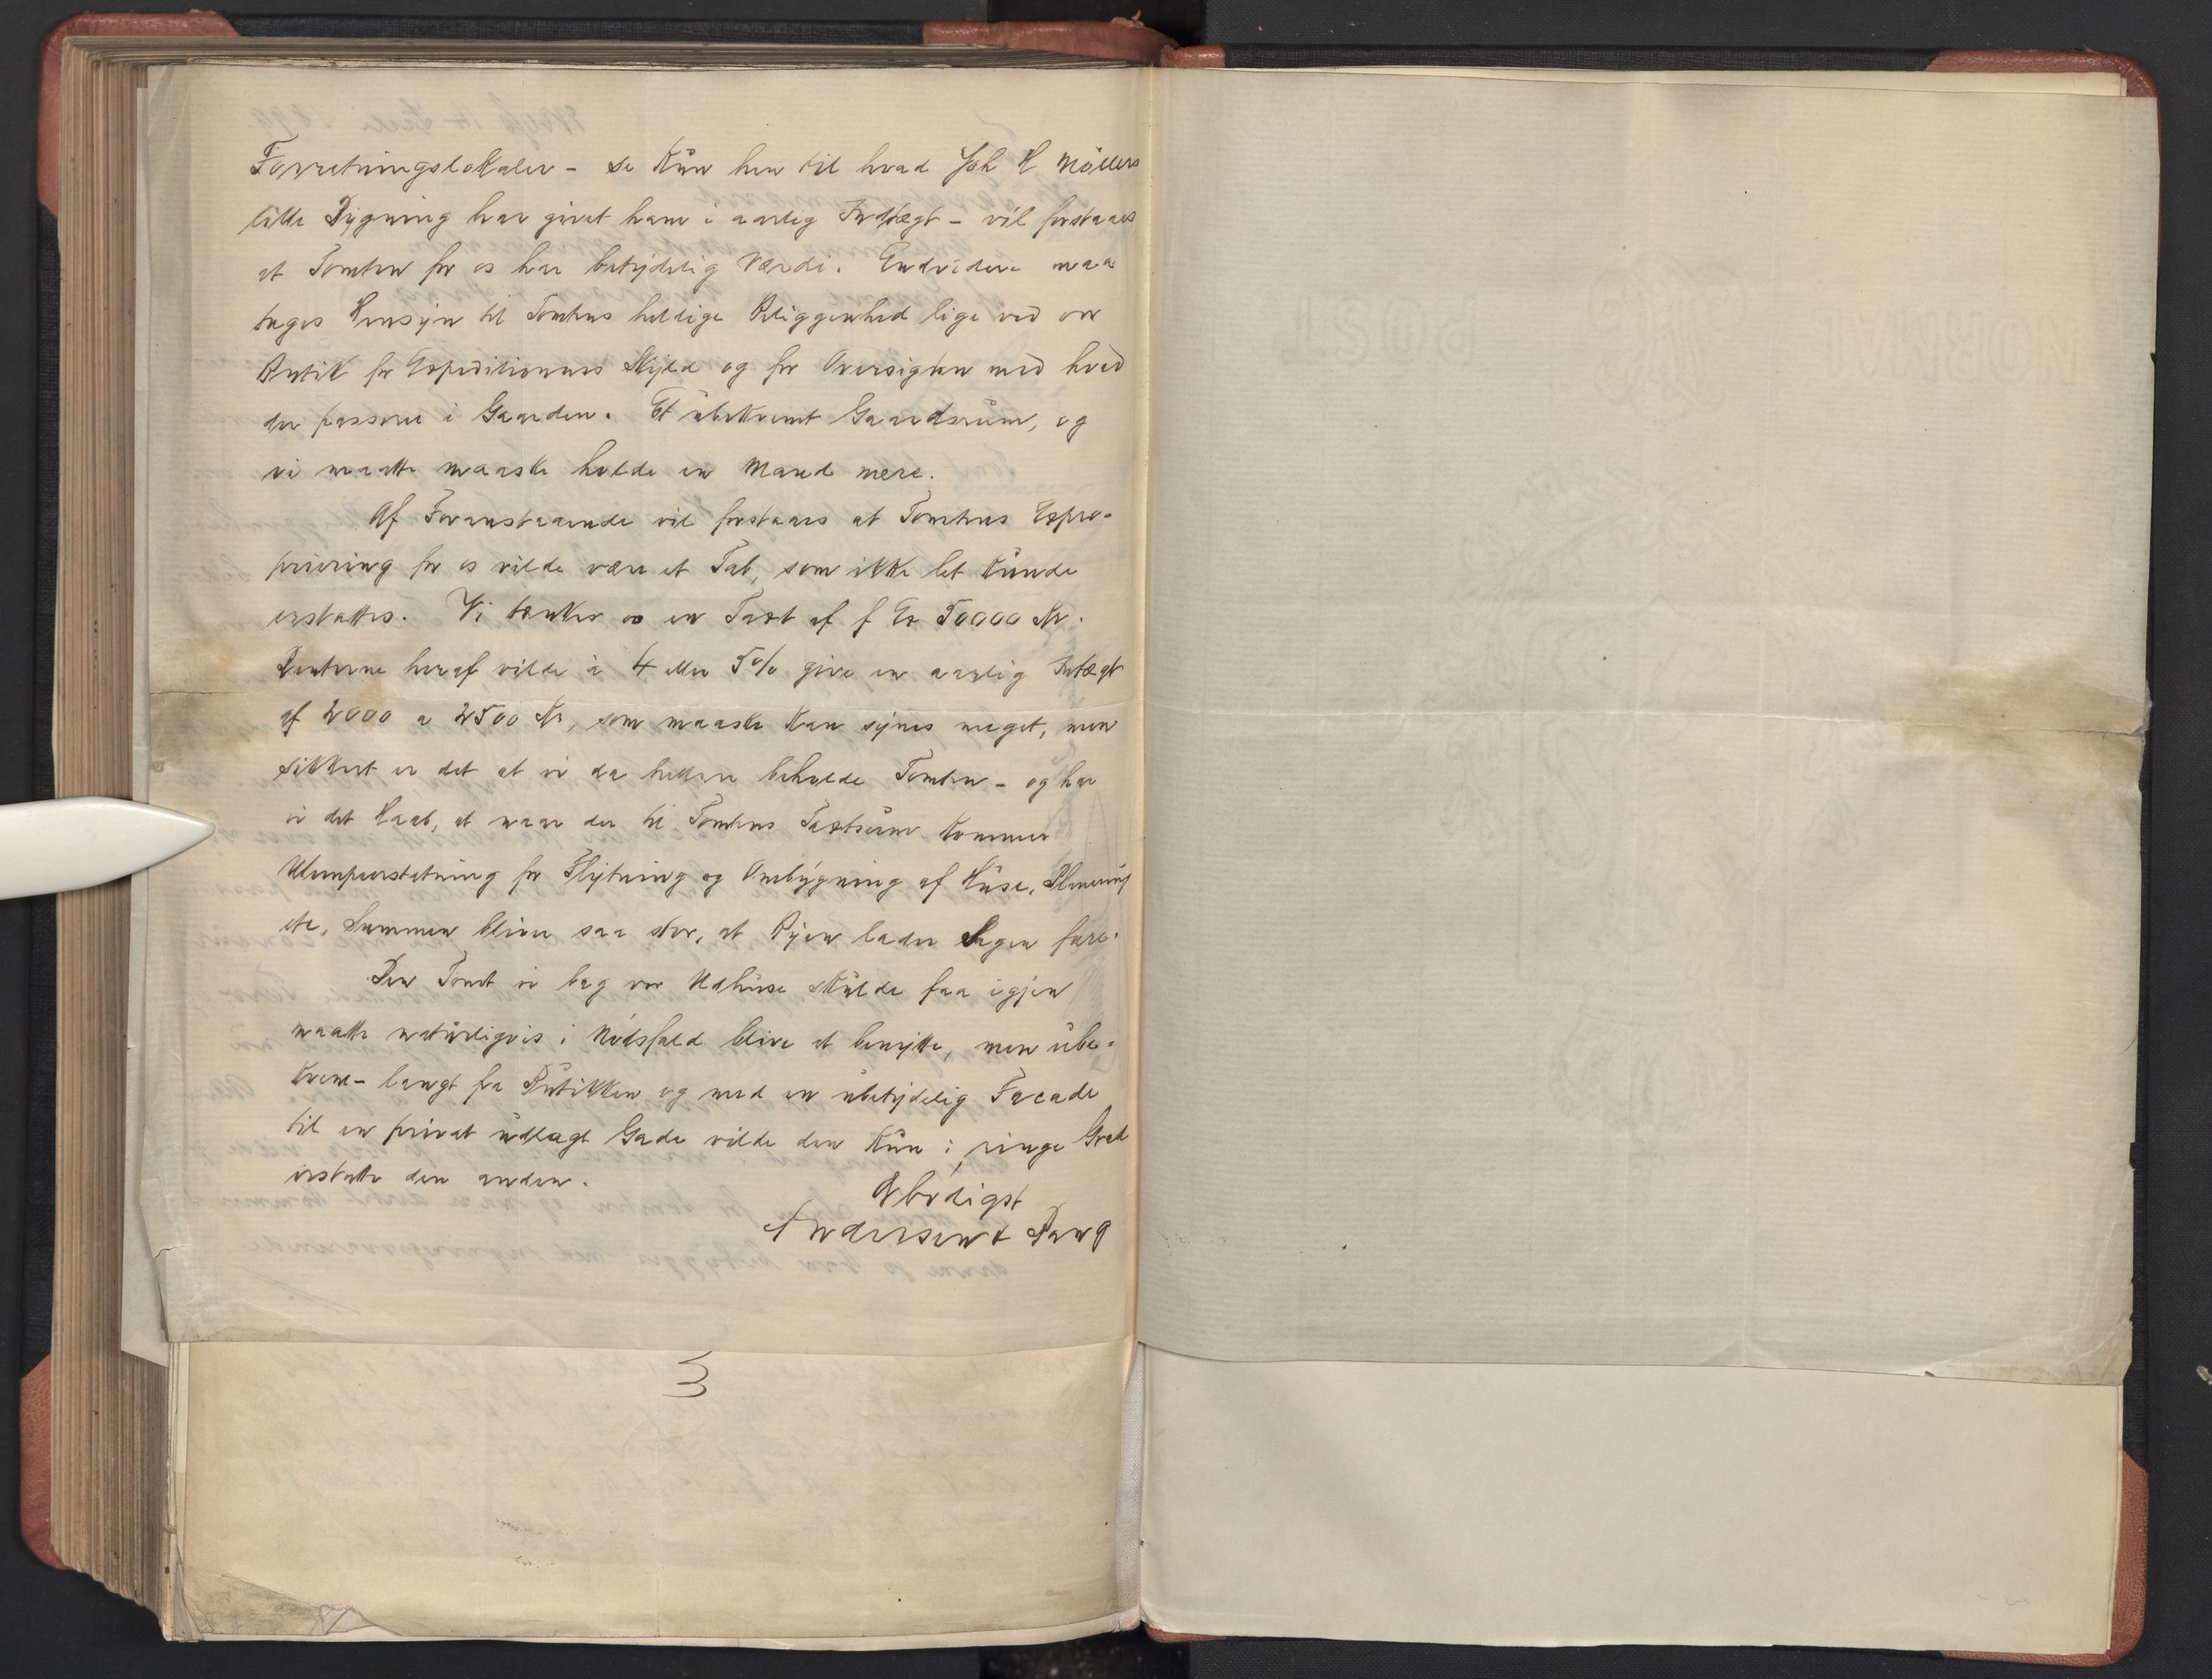 Forretningslokaler - se kun hen til hvad Joh H Møllers
lille Bygning har givet ham i aarlig Indtægt - vil forstaaes
at Tomten for os har betydelig Værdi. Endvidere maa
tages Hensyn til Tomtens heldige Beliggenhed lige ved vor
Butik for Expeditionens Skyld og for Oversigten med hvad
der passerer i Gaarden. Et ubekvemt Gaardsrum, og
vi maatte maaske holde en Mand mere.
Af Foranstaaende vil forstaaes at Tomtens Expro-
priering for os vilde være et Tab, som ikke let kunde
erstattes. Vi tænker os en Taxt af f Ex 50000 Kr.
Renterne heraf vilde à 4 eller 5% give en aarlig Intægt
af 2000 a 2500 Kr, som maaske kan synes meget, men
sikkert er det at vi da hellere beholde Tomten - og har
vi det Haab, at naar der til Tomtens Taxtsum kommer
Ulempeerstatning for Flytning og Ombygning af Huse, Planering
etc, Summen bliver saa stor, at Byen lader Sagen fare.
Den Tomt vi bag vor Udhuse skulde faa igjen
maatte naturligvis i Nødsfald blive at benytte, men ube-
kvem - langt fra Butikken og med en ubetydelig Facade
til en privat udlagt Gade vilde den kun i ringe Grad
erstatte den anden.
Ærbødigst
Andersen & Bang
3